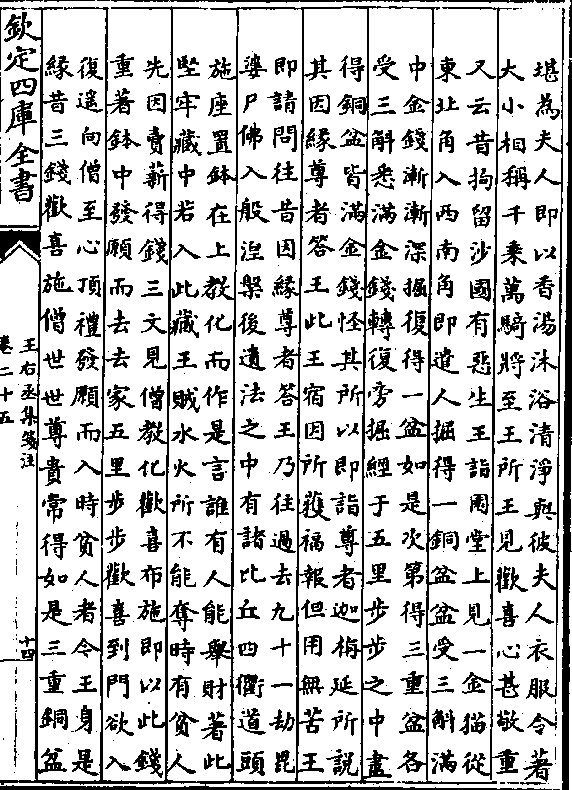 堪為夫人即以香湯沐浴清淨與彼夫人衣服令著
大小相稱千乘萬騎將至王所王見歡喜心甚敬重
又云昔拘留沙國有惡生王詣園堂上見一金猫從
東北角入西南角即遣人掘得一銅盆盆受三斛滿
中金錢漸漸深掘復得一盆如是次第得三重盆各
受三斛悉滿金錢轉復旁掘經于五里步步之中盡
得銅盆皆滿金錢怪其所以即詣尊者迦梅延所說
其因緣尊者答王此王宿因所獲福報但用無苦王
即請問往昔因緣尊者答王乃往過去九十一劫毘
婆尸佛入般涅槃後遺法之中有諸比丘四衢道頭
施座置鉢在上教化而作是言誰有人能舉財著此
堅牢藏中若入此藏王賊水火所不能奪時有貧人
先因賣薪得錢三文見僧教化歡喜布施即以此錢
重著鉢中發願而去去家五里步步歡喜到門欲入
復遥向僧至心頂禮發願而入時貧人者令王身是
緣昔三錢歡喜施僧世世尊貴常得如是三重銅盆
欽定四庫全書
王右丞集箋注
卷二十五
十四